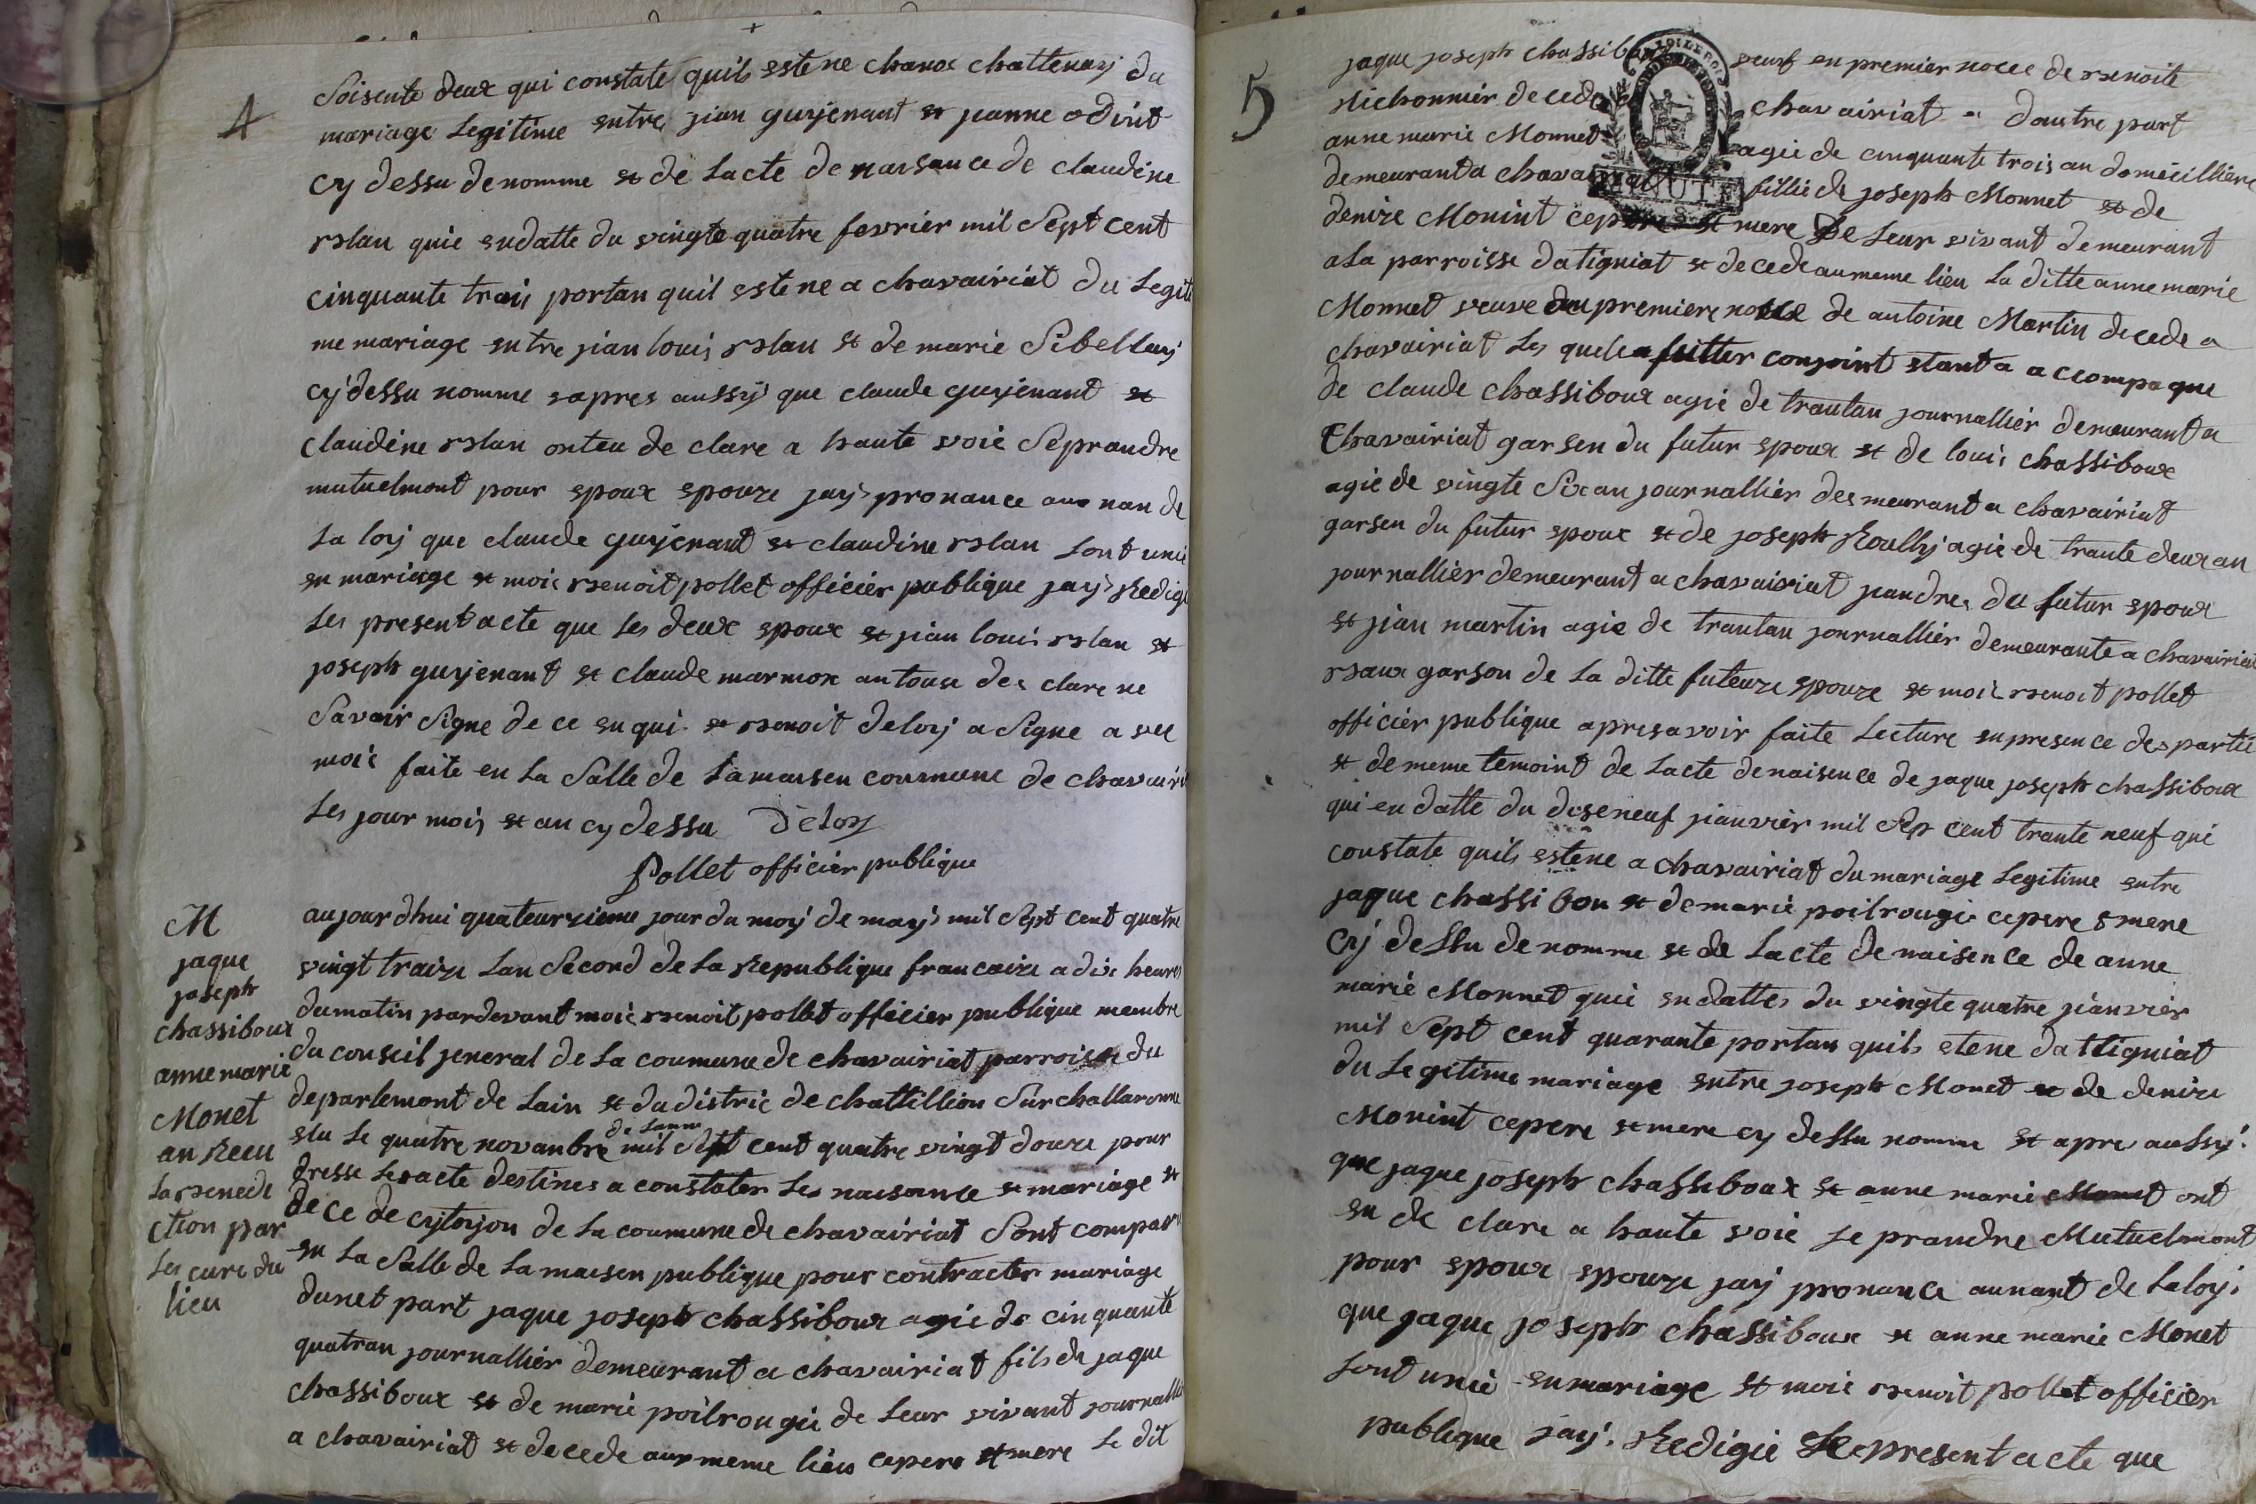 4
Soisente deux qui constate quils este ne chanox chattenay du
mariage Legitime entre jian guyenant et jeanne odint
cy dessu denomme et de Lacte de naissance de claudine
rslan quie endatte du vingte quatre fevrier mil Sept cent
cinquante trais portan quil este ne a chavairiat du Legiti
me mariage entre jian louis rslan et de marie Sibellay
cy dessu nomme sapres aussy que claude guyenant et
claudine rslan onteu de clare a haute voie Seprandre
mutuelmont pour epoux epouze jay pronance aux nan de
La loy que claude guyenant et claudine rslan Sont unie
en mariage et moie rsenoit pollet officier publique jay Redige
Les present acte que Les deux epoux et jian louis rslan et
joseph guyenant et claude marmox antouse de clare ne
Savoir Signe de ce enqui et rsenoit deloy a Signe avee
moie faite en La Salle de Lamaisen coumune de chavairi
Les jour mois et an cy dessu Deloy
Pollet officier publique
M
jaque
joseph
chassiboux
anne marie
Monet
an Receu
La rsenedi
ction par
Les cure du
lieu
aujourdhui quateurzieme jour du moy de may mil Sept cent quatre
vingt traize Lan Second de La Republique francaize a dix heures
dumatin pardevant moie rsenoit pollet officier publique membre
du conseil jeneral de La coumune de chavairiat parroisse du
departemont de Lain et du distric de chattillion Sur challaronne
elu Le quatre novanbre de Lanne mil Sept cent quatre vingt douze pour
dresse Lesacte destines a constater Les naisance et mariage et
de ce de cytoyon de La coumune de chavairiat Sont comparu
en La Salle de La maisen publique pour contracter mariage
dunet part jaque joseph chassiboux agie de cinquante
quatran journallier demeurant a chavairiat fils de jaque
chassiboux et de marie poilrougie de Leur vivant journallie
a chavairiat et decede aux meme lieu cepere et mere Le dit
5
jaque joseph chassiboux veuf en premier noce de rsenoite
Michonnier decede chavairiat dautre part
anne marie Monnet agie de cinquante trois an domicilliere
demeurant a chavairiat fillie de joseph Monnet et de
denize Monint cepere et mere De Leur vivant demeurant
a La parroisse datigniat et decede aumeme lieu La ditte anne marie
Monnet veuve en premiere noce de antoine Martin decede a
chavairiat Les quele futter conjoint etant a accompagne
de claude chassiboux agie de trantan journallier demeurant a
Chavairiat garsen du futur epoux et de louis chassiboux
agie de vingte Sixan journallier des meurant a chavairiat
garsen du futur epoux et de joseph Roully agie de trante deux an
journallier demeurant a chavairiat jeandre du futur epoux
et jian martin agie de trantan journallier demeurante a chavairiat
rsaux garson de La ditte futeuze epouze et moie rsenoit pollet
officier publique apresavoir faite Lecture enpresence des partie
et dememe temoint de Lacte denaisence de jaque joseph chassiboux
qui en datte du diseneuf jianvier mil Sep cent trante neuf qui
constate quils estene a chavairiat du mariage Legitime entre
jaque chassibou et de marie poilrougie cepere & mere
Cy dessu denomme et de Lacte de naisence de anne
marie Monnet quie endatte du vingte quatre jianvier
mil Sept cent quarante portan quils etene dattigniat
du Legitime mariage entre joseph Monet et de denize
Monint cepere et mere cy dessu nomme et apre aussy
que jaque joseph chassiboux et anne marie Monet ont
eu de clare a haute voie Le prandre Mutuelmont
pour epoux epouze jay pronance aunant de Laloy
que jaque joseph chassiboux et anne marie Monet
Sont unie enmariage et moie rsenoit pollet officier
publique jay Redigie Le present acte que